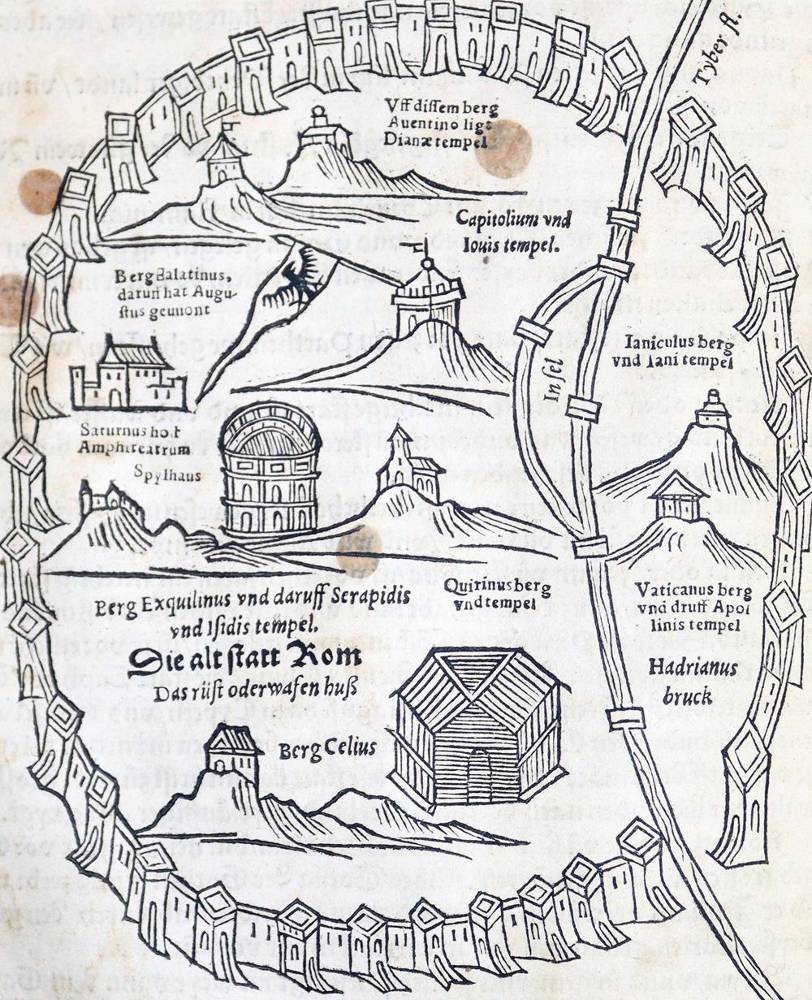 Tyber fl.
Vff dissem berg
Auentino ligt
Dianæ tempel
Capitolium vnd
Iouis tempel.
Berg Balatinus,
daruff hat Augu-
stus gewont
Ianiculus berg
vnd Iani tempel
Insel
Saturnus hoff
Amphiteatrum
Spylhauß
Berg Exquilinus vnd daruff Serapidis
vnd Isidis tempel.
Quirinus berg
vnd tempel
Vaticanus berg
vnd druff Apol
linis tempel
Die alt statt Rom
Das rüst oder wafen huß
Hadrianus
bruck
Berg Celius